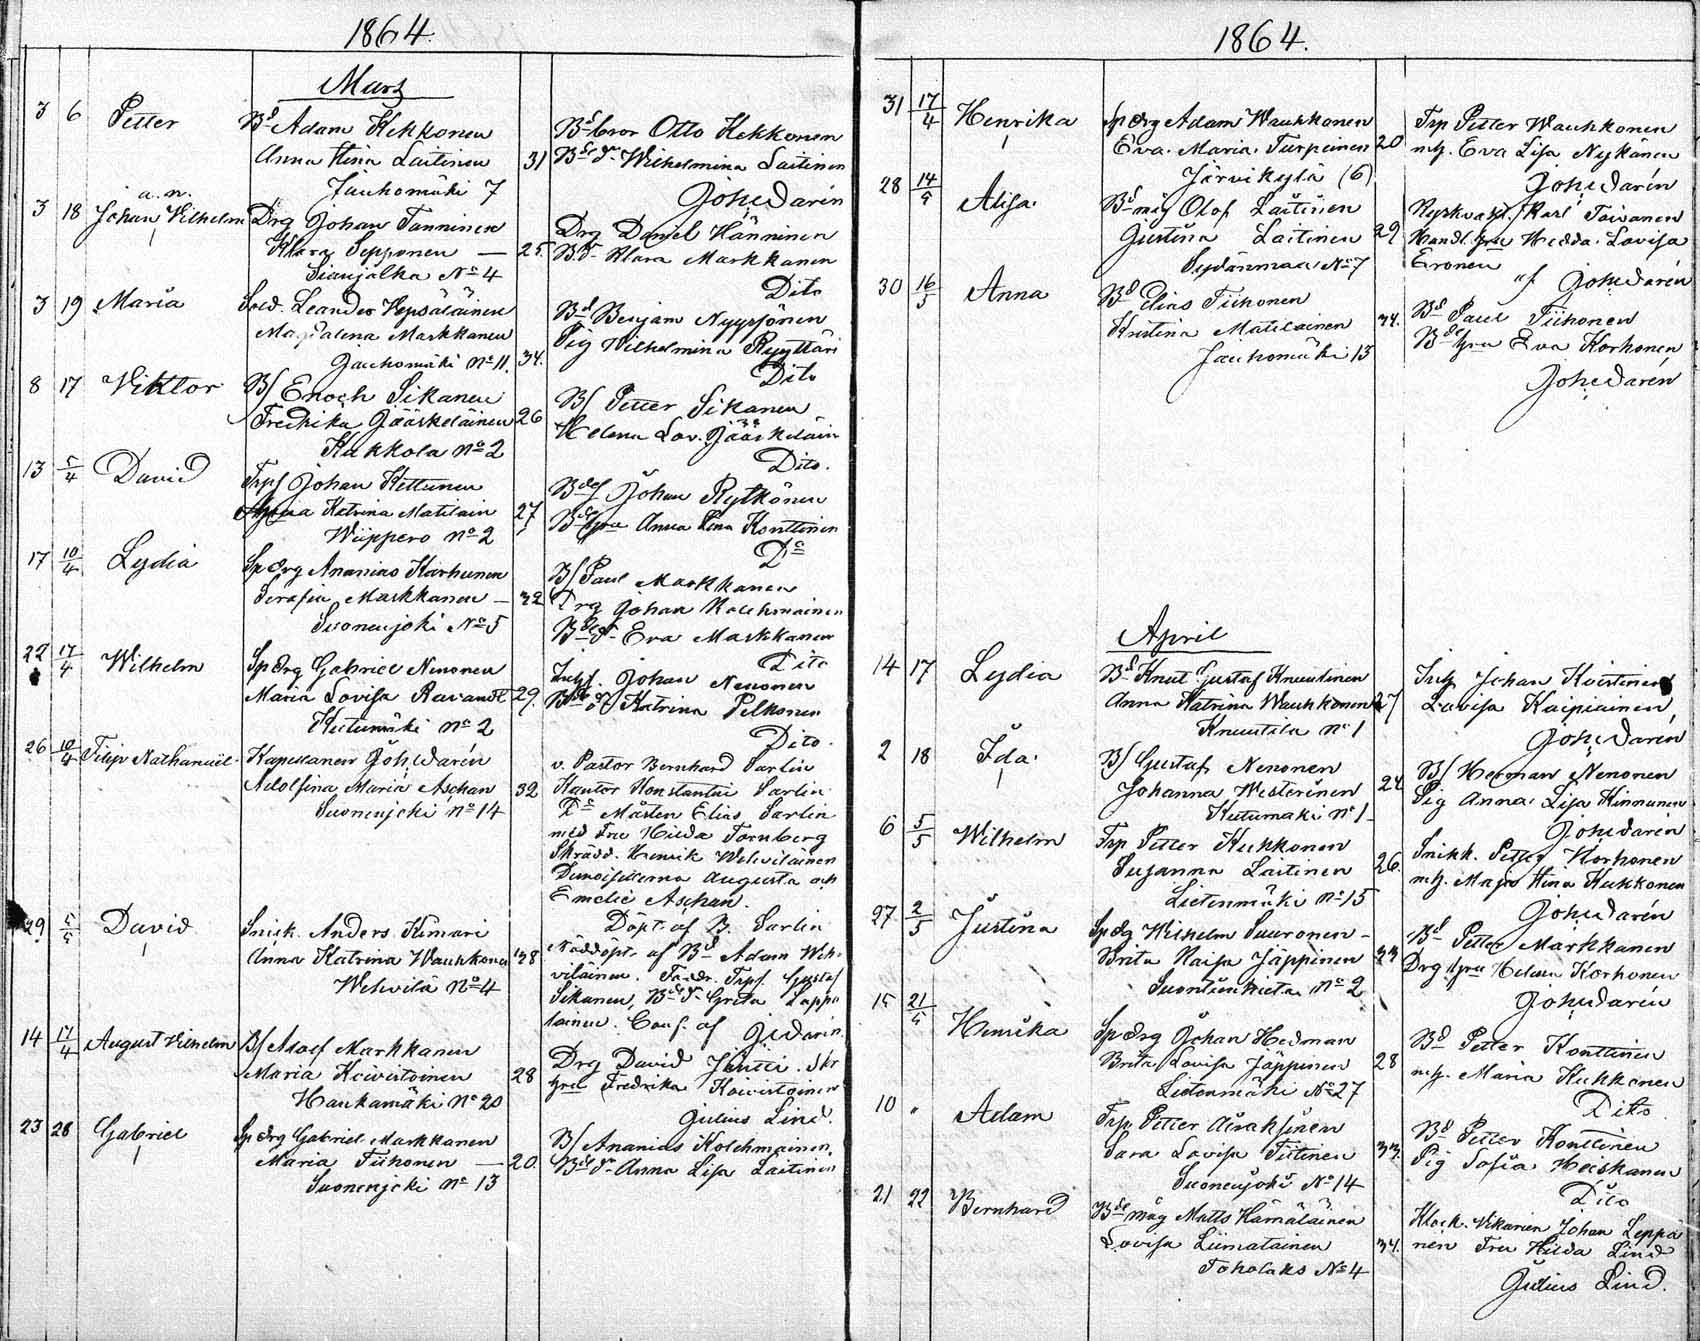 1864.
Mars
3 6 Petter Bd Adam Kekkonen
Anna Stina Laitinen 31
Jauhomäki 7
Bd bror Otto Kekkonen
Bde dr Wilhelmina Laitinen
Joh. Darén
3 18 Johan Vilhelm Drg Johan Tanninen
Klara Sepponen — 25
Sianjalka No 4
Drg Daniel Hänninen
Bd dr Klara Markkanen
Dito
3 19 Maria Sold. Leander Vepsäläinen
Magdalena Markkanen
Jauhomäki No 11. 34.
Bd Benjam Nyyssönen
Pig Wilhelmina Ryyttäri
Dito
8 17 Viktor B/ Enoch Sikanen
Fredrika Jääskeläinen 26
Kukkola No 2
B/ Petter Sikanen
Helena Lov. Jääskeläin
Dito.
13 5/4 David Trp/ Johan Kettunen
Katrina Matilain 27
Wiippero No 2
Bde/ Johan Rytkönen
Bde hru Anna Lena Konttinen
Do
17 10/4 Lydia Sp drg Ananias Karhunen
Serafia Markkanen — 32
Suonenjoki No 5
B/ Paul Markkanen
Drg Johan Kolehmainen
Bde dr Eva Markkanen
Dito
22 17/4 Wilhelm Sp drg Gabriel Nenonen
Maria Lovisa Ravandt 29.
Kutumäki No 2
Inhs. Johan Nenonen
Bde dr Katrina Pelkonen
Dito.
26 10/4 Filip Nathanaël Kapellanen Joh. Darén
Adolfina Maria Aschan 32
Suonenjoki No 14
v. Pastor Bernhard Sarlin
Kantor Konstantin Sarlin
Do Mårten Elias Sarlin
med Fru Hilda Fornberg
Skrädd. Henrik Wehviläinen
Demoisellerna Augusta och
Emelie Aschan.
Döpt af B. Sarlin
29 5/5 David Snick. Anders Kimari
Anna Katrina Wauhkonen 38
Wehvilä No 4
Nöddöpt. af Bd Adam Weh-
viläinen. Faddr. Trp/. Gustaf
Sikanen, Bde dr Greta Lappa
lainen. Conf. af J. Darén.
14 17/4 August Vilhelm B/ Adolf Markkanen
Maria Koivistoinen 28
Haukamäki No 20
Drg David Jäntti. Skr
hru Fredrika Koivistoinen
Julius Lind.
23 28 Gabriel Sp drg Gabriel Markkanen
Maria Tiihonen — 20.
Suonenjoki No 13
B/ Ananias Kolehmainen
Bde dr Anna Lisa Laitinen
1864.
31 17/4 Henrika Sp drg Adam Wauhkonen
Eva Maria Turpeinen 20
Järvikylä (6)
Trp Petter Wauhkonen
m h. Eva Lisa Nykänen
Joh. Darén
28 14/5 Alisa Bd måg Olof Laitinen
Gustina Laitinen 29
Sydänmaa No 7
Karl Toivanen
Handl. hru Hedda Lovisa
Eronen
af Joh. Darén
30 16/5 Anna Bd Elias Tiihonen
Kristina Matilainen 34.
Jauhomäki 13
Bd Paul Tiihonen
Bde hru Eva Korhonen
Joh. Darén
April
14 17 Lydia Bd Knut Gustaf Knuutinen
Anna Katrina Wauhkonen 27
Knuutila No 1
Inh Johan Koistinen
Lovisa Karpiainen,
Joh. Darén
2 18 Ida B/ Gustaf Nenonen
Johanna Westerinen 24
Kutumäki No 1
B/ Herman Nenonen
Pig Anna Lisa Kinnunen
Joh. Darén
6 5/5 Wilhelm Trp Petter Kukkonen
Susanna Laitinen 26.
Lietenmäki No 15
Snikk. Petter Korhonen
m h. Maja Stina Kukkonen
Joh. Darén
27 2/5 Justina Sp drg Wilhelm Suuronen
Brita Kaisa Jäppinen 33
No 2
Bd Petter Markkanen
Drg hru Helena Korhonen
Joh. Darén
15 21/5 Henrika Sp drg Johan Hedman
Brita Lovisa Jäppinen 28
Lietenmäki No 27
Bd Petter Konttinen
m h. Maria Kukkonen
Dito
10 " Adam Trp. Petter Airaksinen
Sara Lovisa Tiitinen 33.
Suonenjoki No 14
Bd Petter Konttinen
Pig Sofia Heiskanen
Dito
21 22 Bernhard Bde måg Matts Hämäläinen
Lovisa Liimatainen 34.
Toholaks No 4
Klock. Vikarien Johan Leppä
nen Fru Hilda Lind
Julius Lind.